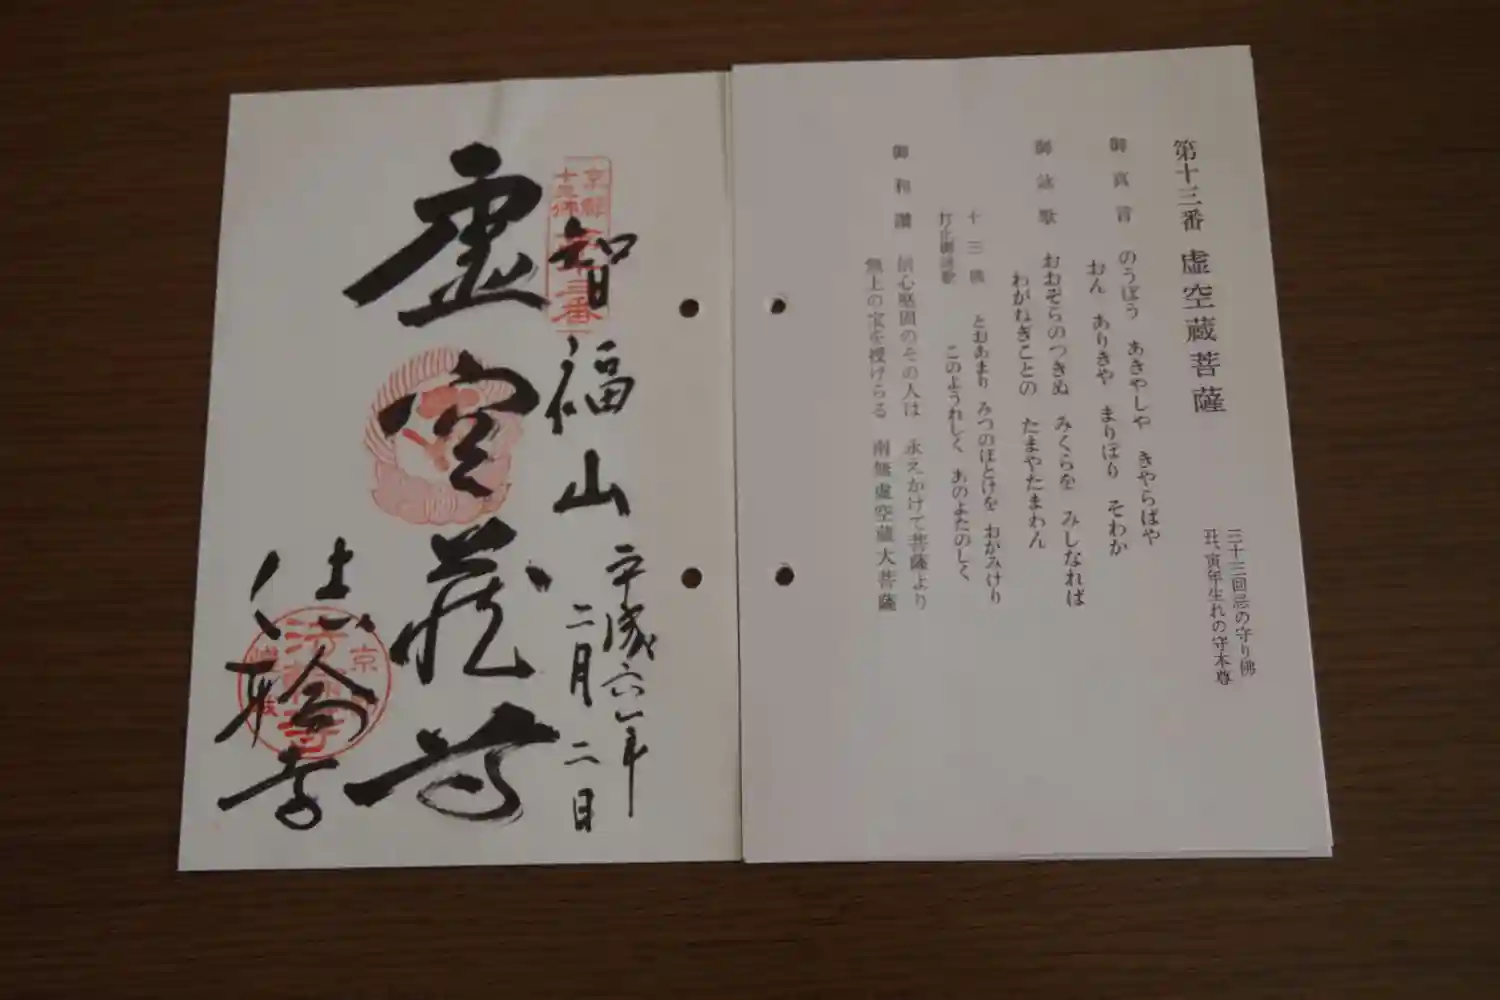 第十三番 虚空蔵菩薩
三十三回忌の守り佛
丑、寅年生れの守本尊
御真言 のうぼう あきやしや きやらばや
おん ありきや まりぼり そわか
御詠歌 おおぞらのつきぬ みくらを みしなれば
わがねぎことの たまやたまわん
十三佛 とおあまり みつのほとけを おがみけり
打止御詠歌 このようれしく あのよたのしく
御和讃 信心堅固のその人は 永えかけて菩薩より
無上の宝を授けらる 南無虚空蔵大菩薩
京都
十三佛
第十三番
智福山
平成六年
二月二日
虚空蔵尊
法輪寺
京
嵯峨
法輪寺